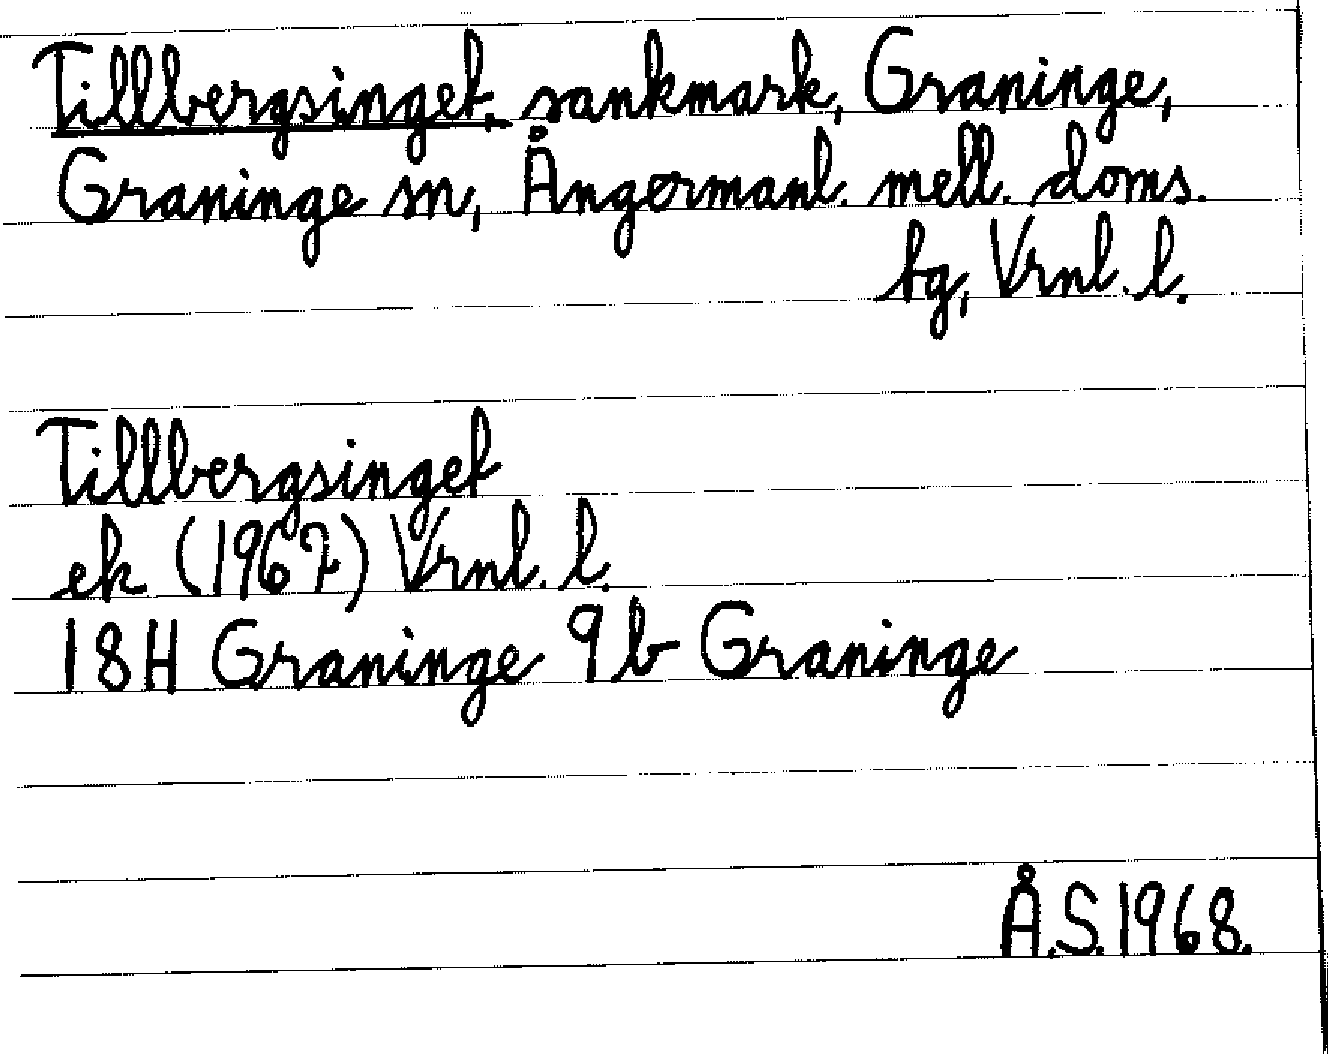 Tillbergsinget, sankmark, Graninge,
Graninge sn, Ångermanl. mell. doms.
tg, Vrnl. l.
Tillbergsinget
ek (1967) Vrnl. l.
18H Graninge 9b Graninge
Å.S. 1968.